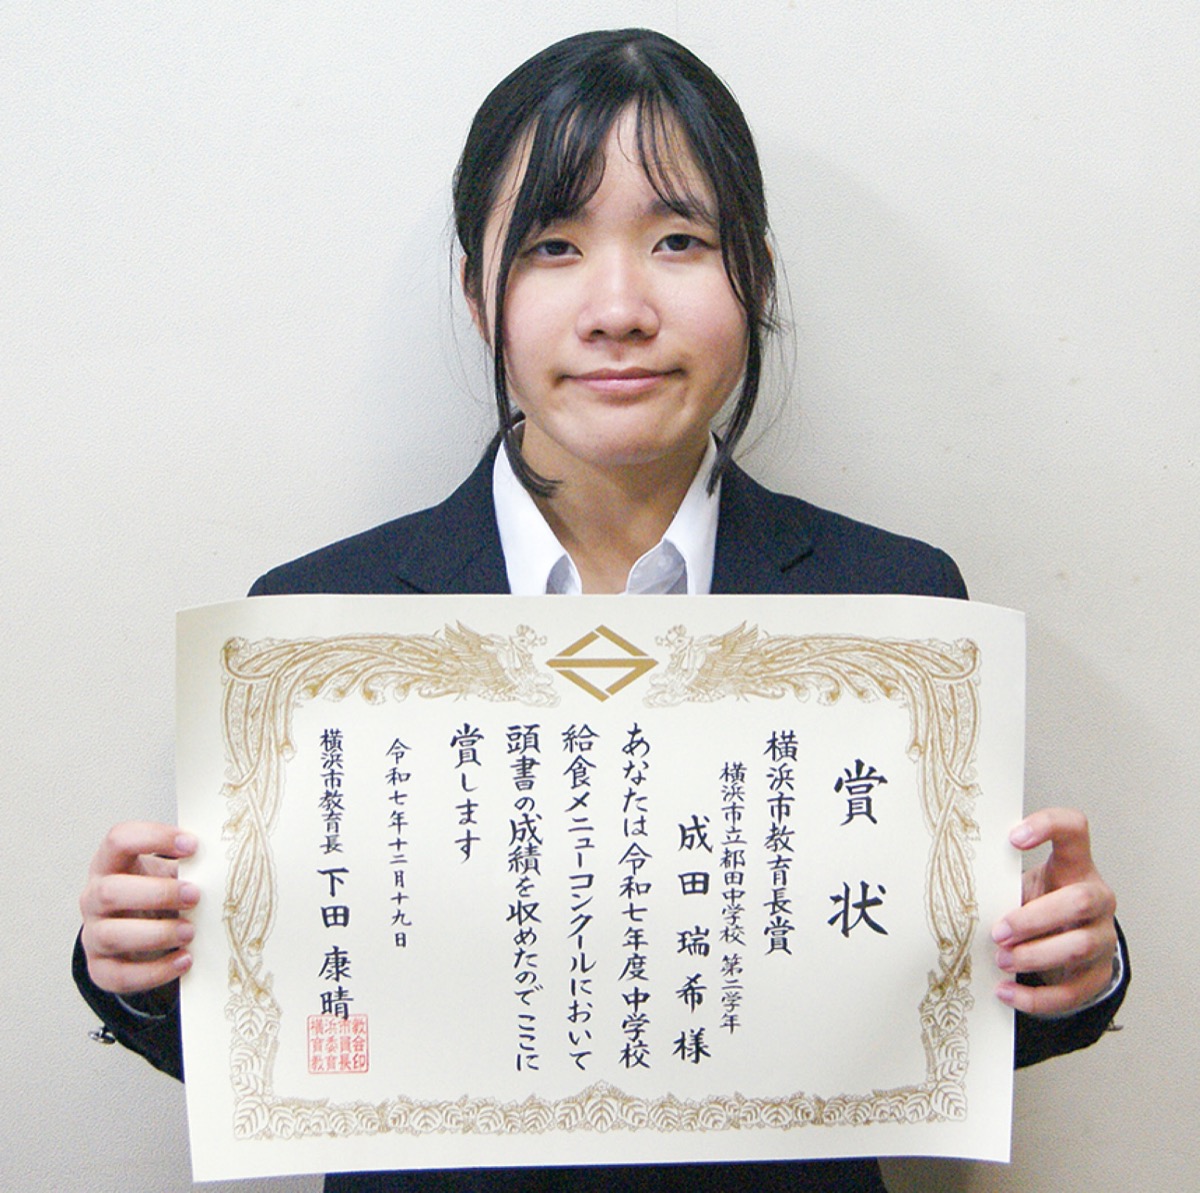 賞状
横浜市教育長賞
横浜市立都田中学校 第二学年
成田 瑞希 様
あなたは令和七年度中学校
給食メニューコンクールにおいて
頭書の成績を収めたのでここに
賞します
令和七年十二月十九日
横浜市教育長 下田 康晴